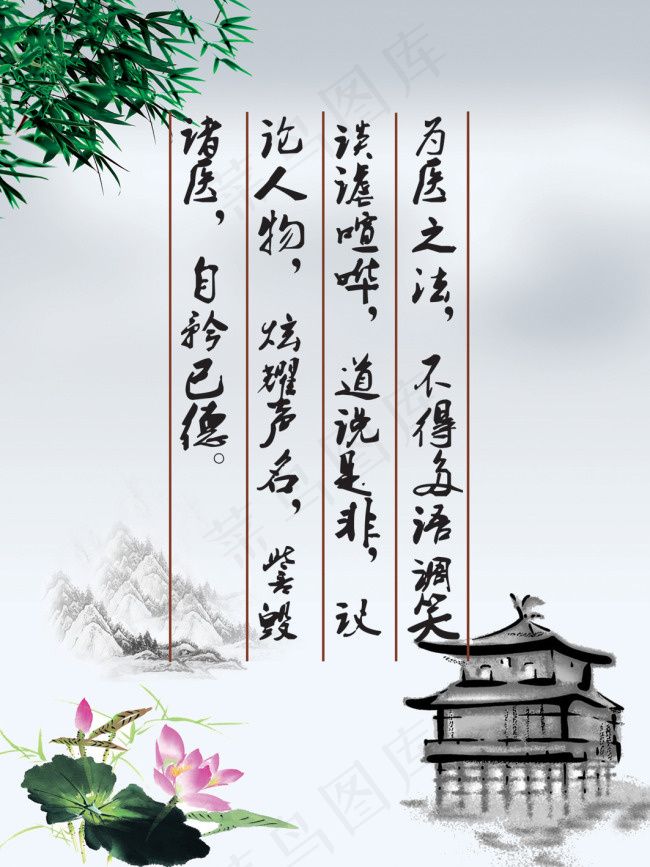 为医之法，不得多语调笑
谈谑喧哗，道说是非，议
论人物，炫耀声名，訾毁
诸医，自矜己德。
菜鸟图库